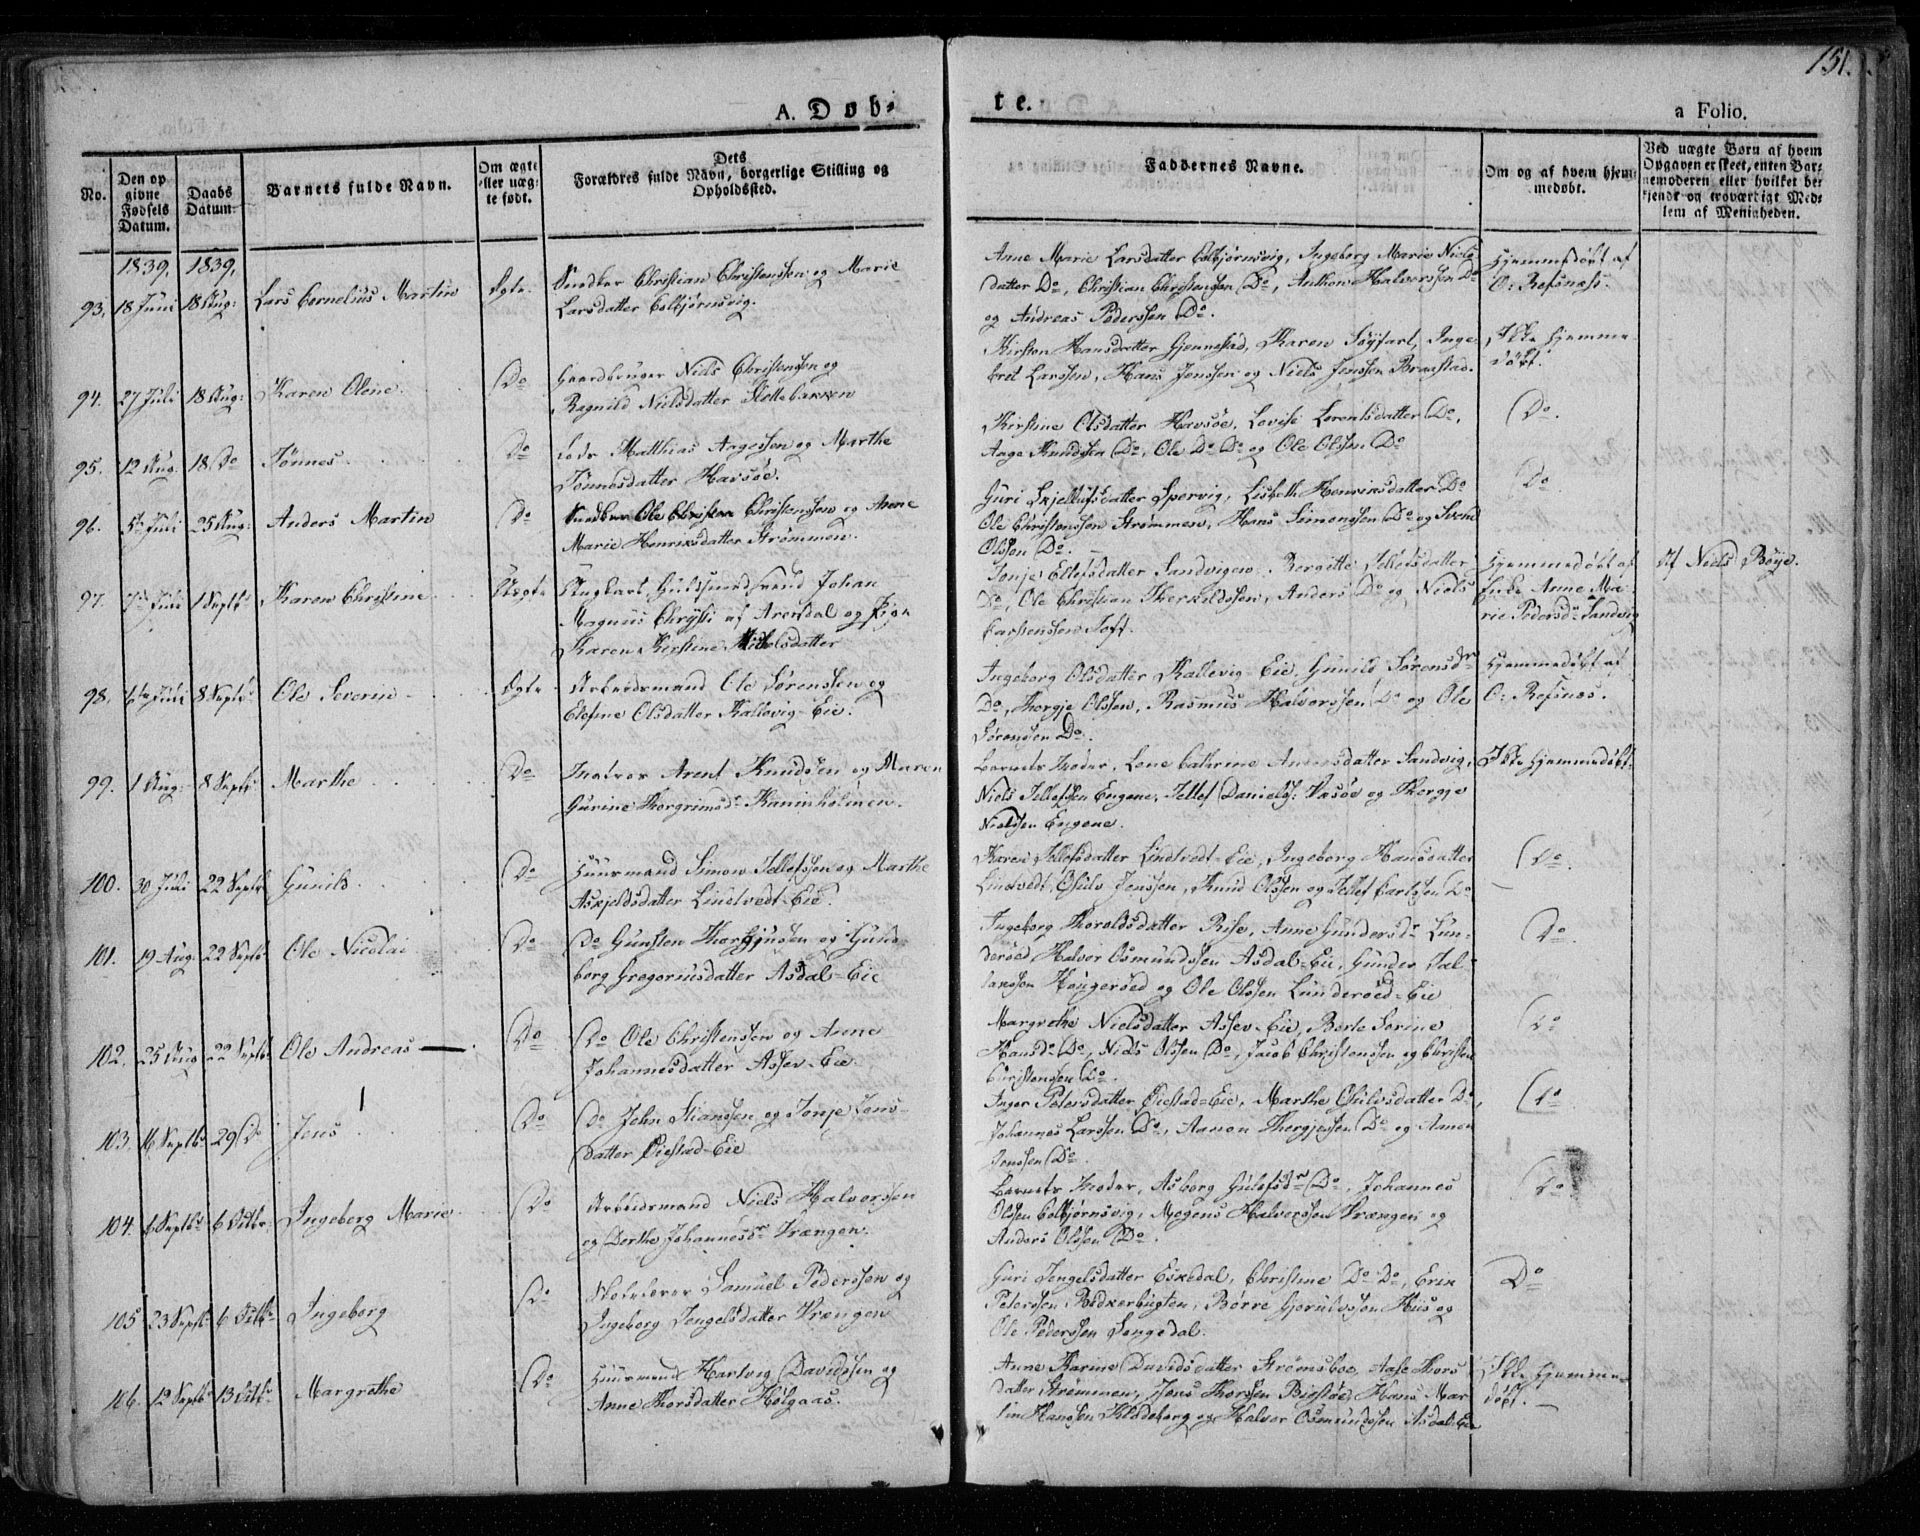 151.
A. Döb-
te.
a Folio.
No.
Den op
givne
Födsels
Datum.
Daabs
Datum.
Barnets fulde Navn.
Om ægte
eller uæg-
te födt.
Dets
Forældres fulde Navn, borgerlige Stilling og
Opholdssted.
Faddernes Navne.
Om og af hvem hjem-
medöbt.
Ved uægte Born af hvem
Opgaven er skeet, enten Bar-
nemoderen eller hvilket be-
kjendt og troværdigt Med-
lem af Menigheden.
1839, 1839,
93. 18 Juni 18 Aug: Lars Cornelius Martin Ægte Snedker Christian Christenssen og Marie
Larsdatter Colbjørnsvig.
Anne Marie Larsdatter Colbjørnsvig, Ingeborg Marie Niels-
datter Do, Christian Christenssen Do, Anthon Halvorssen Do
og Andreas Pederssen Do.
Hjemmedøbt af
O: Refsnæss.
94. 27 Juli 18 Aug: Karen Olene Do Gaardbruger Niels Christenssen og
Ragnild Nielsdatter Slottebakken
Kirsten Hansdatter Gjennestad, Karen Søyfart, Inge-
bret Larssen, Hans Jenssen og Niels Jenssen Braastad.
Ikke Hjemme-
døbt.
95. 12 Aug. 18 Do Tønnes Do Lods Matthias Aagessen og Marthe
Tønnesdatter Havsøe.
Kirstine Olsdatter Havsøe, Lovise Lorentsdatter Do,
Aage Knudssen Do, Ole Do Do og Ole Olssen Do
Do.
96. 5te Juli 25 Aug: Anders Martin Do Snedker Ole Christen Christenssen og Anne
Marie Henriksdatter Strømmen.
Guri Kjellulfsdatter Spervig, Lisbeth Henriksdatter Do
Ole Christenssen Strømmen, Hans Simonssen Do og Svend
Olssen Do.
Do
97. 7de Juli 1 Septbr Karen Christine Uægte Ungkarl Guldsmedsvend Johan
Magnus Chrysti af Arendal og Pige
Karen Kirstine Nicolsdatter
Tonje Ellefsdatter Sandvigen, Bergitte Tellefsdatter
Do, Ole Christian Therkildssen, Anders Do og Niels
Carstenssen Toft.
Hjemmedøbt af
Enke Anne Ma-
rie Pedersdr Sandvig
Af Niels Bøye.
98. 6te Juli 8 Septbr Ole Severin Ægte Arbeidsmand Ole Sørenssen og
Elefine Olsdatter Kallevig-Eie.
Ingeborg Olsdatter Kallevig-Eie, Gunild Sørensdr
Do, Thergje Olssen, Rasmus Halvorssen Do og Ole
Sørenssen Do.
Hjemmedøbt af
O: Refsnæs.
99. 1 Aug: 8 Septbr Marthe Do Matros Arent Knudsen og Maren
Gurine Thorgrimsdr Kaninholmen.
Barnets Moder, Lene Cathrine Andersdatter Sandvig,
Niels Tellefssen Engene, Tellef Danielss: Vasøe og Thergje
Nielssen Engene.
Ikke Hjemmedøbt.
100. 30 Juli 22 Septbr Gunild Do Huusmand Simon Tellefssen og Marthe
Askjeldsdatter Lindtvedt-Eie.
Karen Tellefsdatter Lindtvedt-Eie, Ingeborg Hansdatter
Lindtvedt, Osulv Jenssen, Knud Olssen og Tellef Carlssen Do
Do.
101. 19 Aug. 22 Septbr Ole Nicolai Do Do Gunsten Thorgjussen og Gund-
borg Gregoriusdatter Asdal-Eie
Ingeborg Thoralsdatter Rise, Anne Gundersdr Lun-
derøed, Halvor Osmundssen Asdal-Eie, Gunder Tal-
lakssen Kongerøed og Ole Olssen Lunderøed-Eie
Do.
102. 25 Aug 22 Septbr Ole Andreas Do Do Ole Christenssen og Anne
Johannesdatter Assev-Eie.
Margrethe Nielsdatter Assev-Eie, Berte Sorine
Hansdr Do, Niels Olssen Do, Jacob Christenssen og Christen
Christenssen Do.
Do
103. 16 Septbr 29 Do Jens Do Do John Stianssen og Tonje Jens-
datter Øiestad-Eie
Inger Petersdatter Øiestad-Eie, Marthe Osulvsdatter Do,
Johannes Larssen Do, Aanon Thergjussen Do og Aanon
Jenssen Do
Do
104. 6 Septbr 6 Octbr Ingeborg Marie Do Arbeidsmand Niels Halvorssen
og Dorthe Johannesdr Vrængen.
Barnets Moder, Asborg Gulefsdr Do, Johannes
Olssen Colbjørnsvig, Mogens Halvorssen Vrængen og
Anders Olssen Do.
Do
105 23 Septbr 6 Octbr Ingeborg Do Skolelærer Samuel Pederssen og
Ingeborg Tengelsdatter Vrængen
Guri Tengelsdatter Eskedal, Christine Do Do, Erik
Peterssen Bødkerbugten, Børre Gjerulvssen Hiis og
Ole Pederssen Longedal.
Do
106. 12 Septbr 13 Octbr Margrethe Do Huusmand Hartvig Davidssen og
Anne Thorsdatter Holgaas.
Anne Karine Davidsdatter Strømsboe, Aase Thors-
datter Strømmen, Jens Thorssen Biestøe, Hans Mar-
tin Hanssen Klødeberg og Halvor Osmundssen Asdal-Eie
Ikke Hjemme-
døbt.